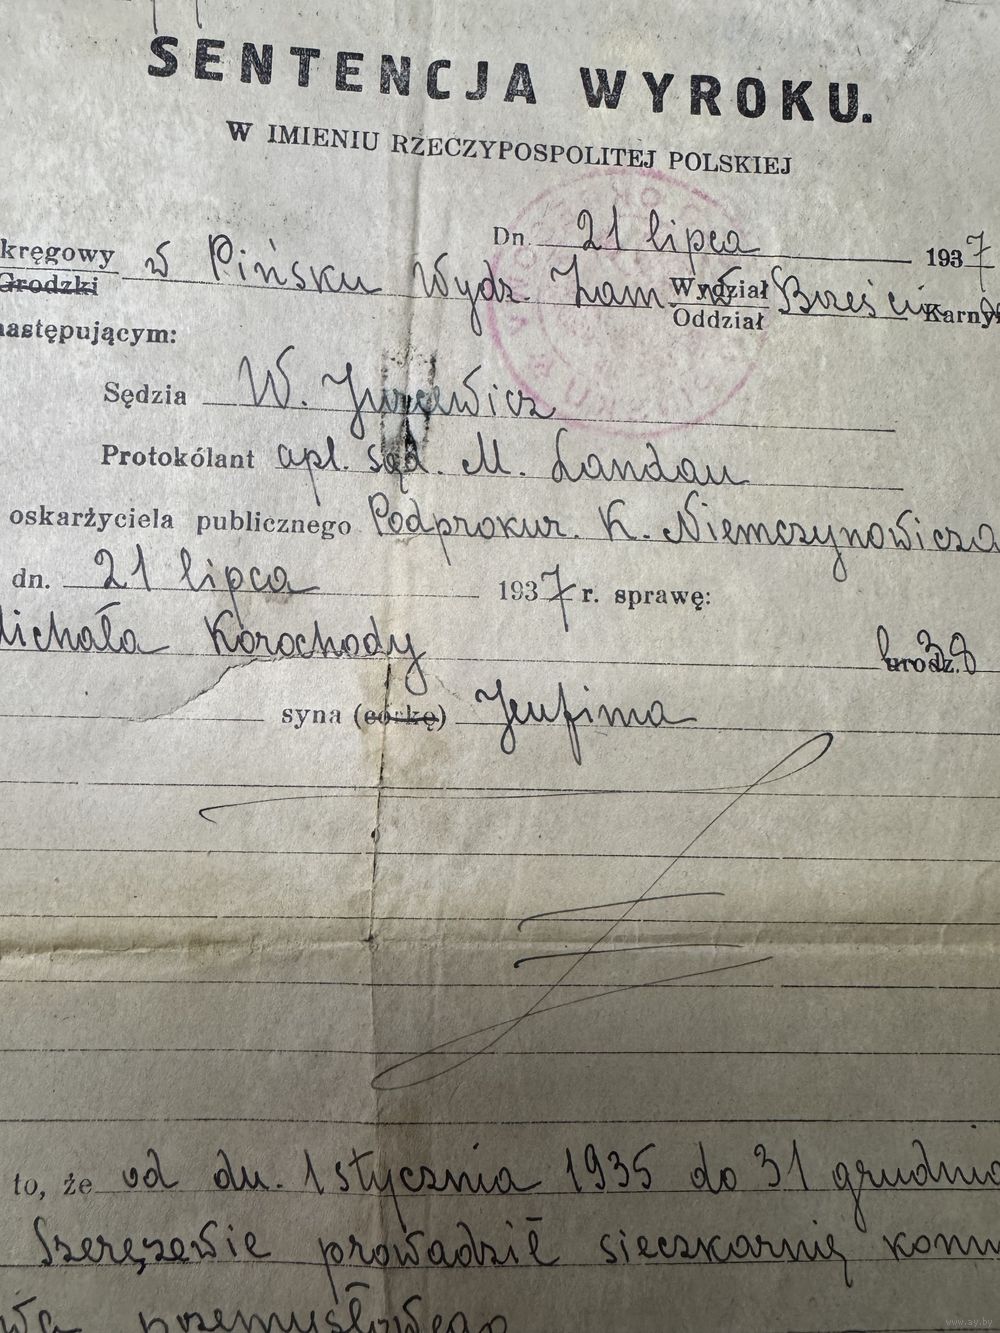 SENTENCJA WYROKU.
W IMIENIU RZECZYPOSPOLITEJ POLSKIEJ
Dn. 21 lipca 1937
kręgowy
Grodzki
w Pińsku Wydz. Zam. w Brześciu
Wydział
Oddział
Karny
następującym:
Sędzia W. Jurcewicz
Protokólant apl. sąd. M. Landau
oskarżyciela publicznego Podprokur. K. Niemczynowicza
dn. 21 lipca 1937 r. sprawę:
Michała Korochody urodz. 38
syna (córkę) Jeufima
to, że od dn. 1 stycznia 1935 do 31 grudnia
Szereszewie prowadził sieczkarnię
przemysłowego
www.ay.by